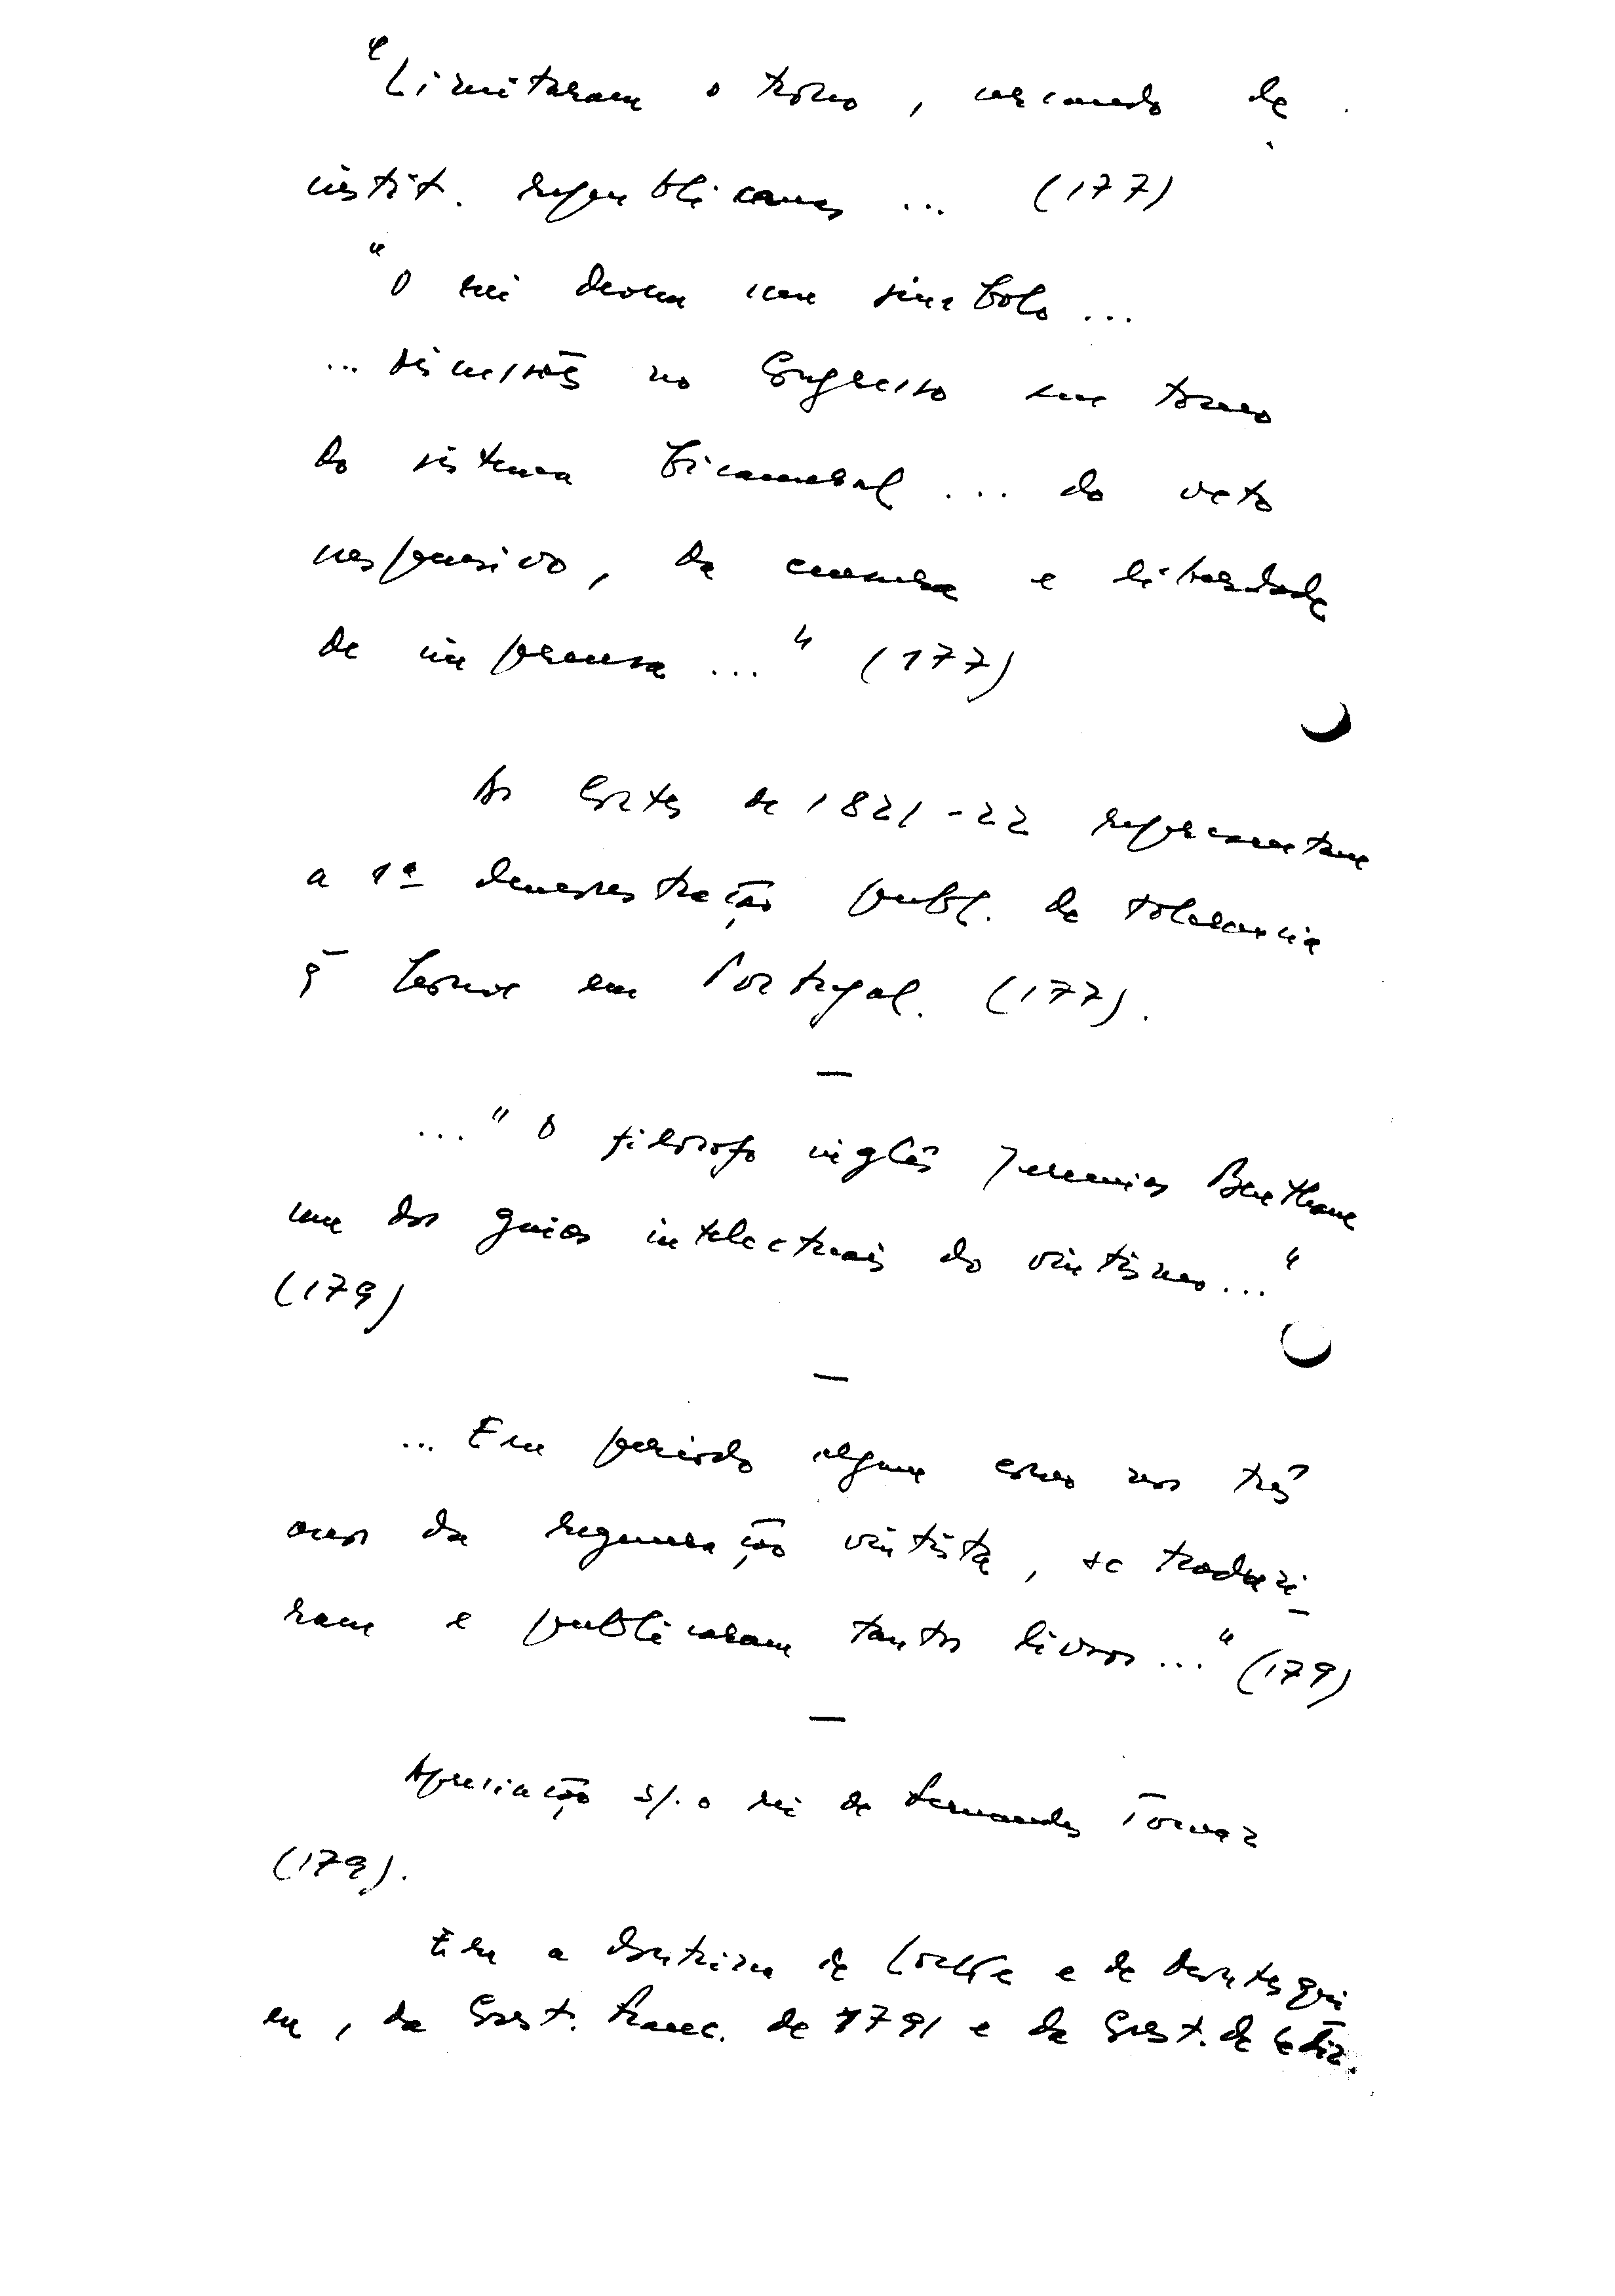 "Limitaram o trono, cercando de
instit. republicanas ... (177)
"O rei devem um simbolo ...
... discussões no Congresso em torno
do sistema bicameral ... do veto
suspensivo, da censura e liberdade
de imprensa ..." (177)
As Cortes de 1821-22 representam
a 1ª demonstração publ. de tolerancia
q̄ houve em Portugal. (177).
—
..." O filosofo inglês Jeremias Bentham
um dos guias intelectuais do vintismo..."
(179)
—
... Em periodo algum como nos três
anos da regeneração vintista, se traduzi-
ram e publicaram tantos livros ..." (179)
—
Apreciação s/. o rei de Fernandes Tomaz
(179).
Era a doutrina de Locke e de Montesqui
eu, da Const. franc. de 1791 e da Const. de Cadiz.